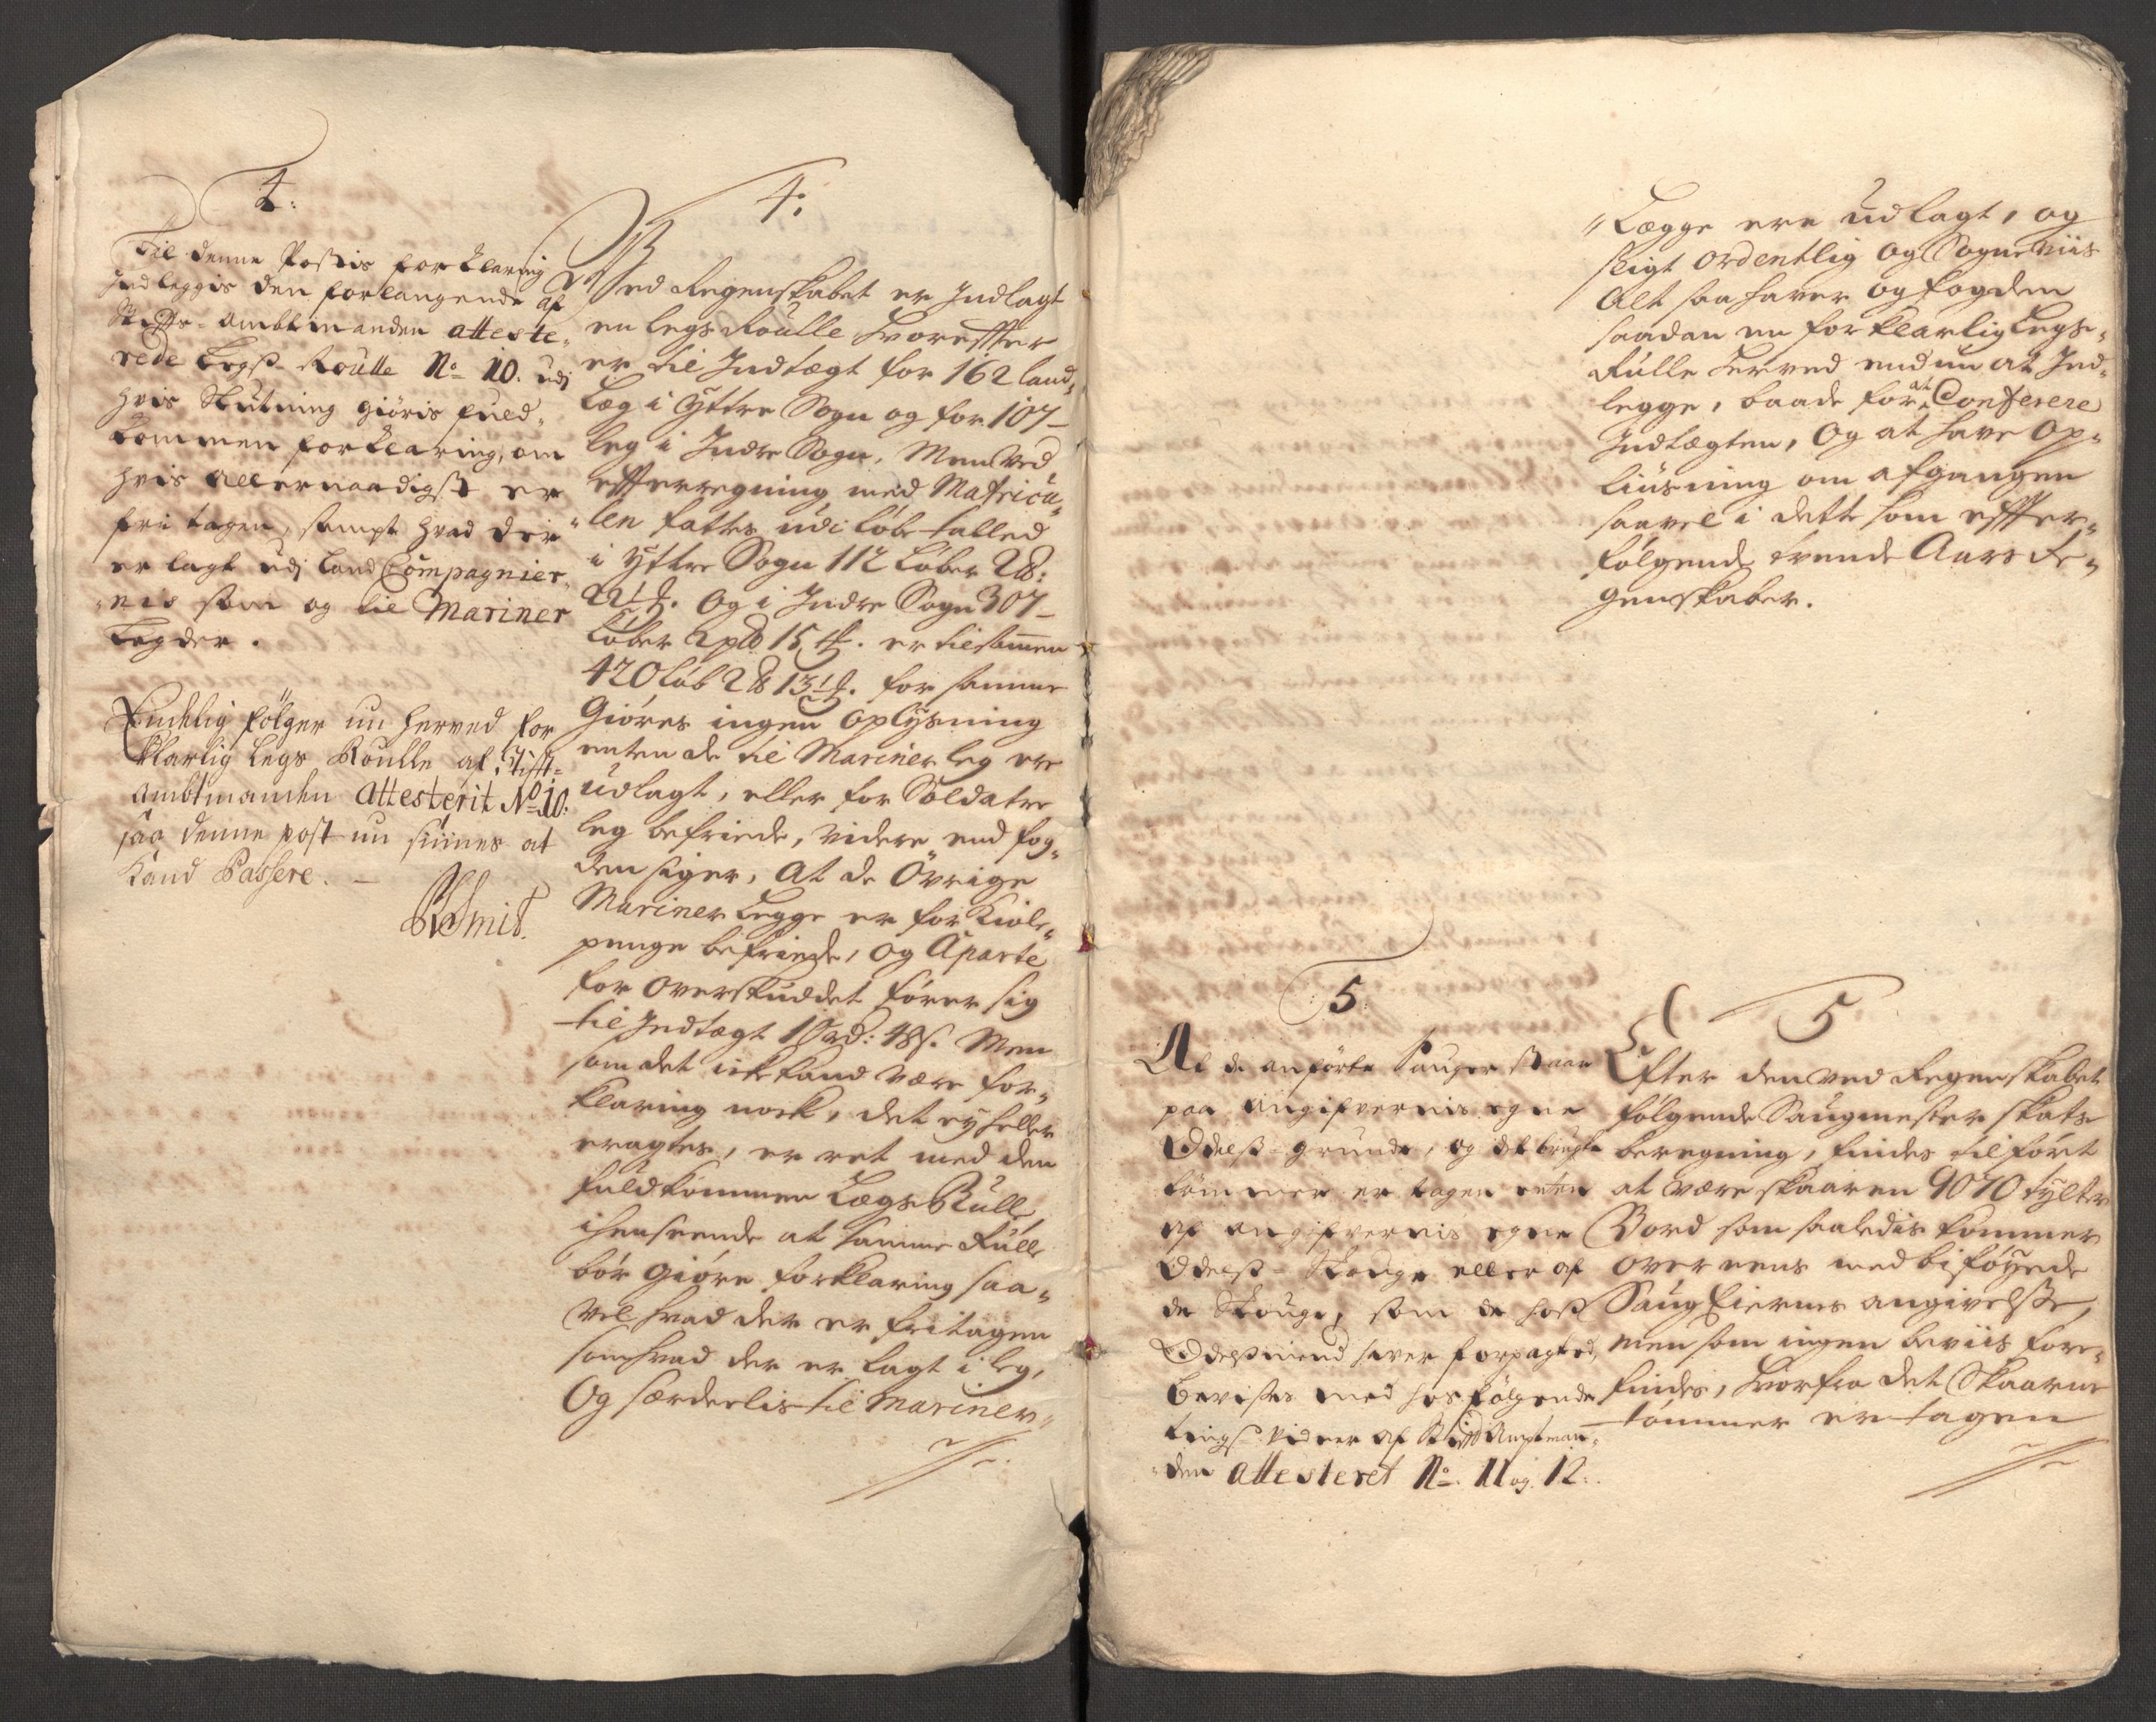 4:
Til denne Postis forklaring
Indleggis den forlangende af
Stifts-Ambtmanden atteste-
rede Legß-Roulle No 10. udj
hvis Slutning giöris fuld-
kommen forklaring, om
hvis allernaadigst er
fri tagen, sampt hvad der
er lagt udj Land Compagnier-
nis som og til Mariner
Legder.
Endelig fölger nu herved for
klarlig Legs Roulle af Stift-
ambtmanden Attesterit No 10:
saa denne post nu siunes at
kand Passere. -
Smit.
4:
Ved Regenskabet er Indlagt
en legs Roulle hvorefter
er til Indtægt for 162 land-
læg i Yttre Sogn og for 107-
leg i Indre Sogn, Men ved
efterregning med Matricu-
len fattes udi löbe-talled
i Yttre Sogn 112 Löber 2 ß:
22½ . Og i Indre Sogn 307-
Löber 2 pd 15 . er tilsammen
420 Löb 2 13½ . for samme
Giöres ingen oplysning
enten de til Mariner leg ere
udlagt, eller for Soldater
leg befriede, videre end fog-
den siger, At de Övrige
Mariner Legge er for Kiole-
penge befriede, og Aparte
for overskuddet förer sig
til Indtægt 1 rd: 48 s. Men
som det icke kand være for-
klaring nock, det ey heller
eragtes, er ret med den
fuldkommen Lægs Rull
i henseende at samme Rulle
bör giöre forklaring saa-
vel hvad der er fritagen
som hvad der er lagt i leg,
Og særdeelis til Mariner-
Lægge ere udlagt, og
sligt ordentlig og Sogneviis
Alt saa haver og fogden
saadan en forklarlig Legs-
Rulle herved endnu at Ind-
legge, baade for at Conferere
Indtægten, Og at have Op-
liusning om afgangen
saavel i dette som effter-
fölgende trende Aars Re-
genskaber.
5:
At de anförte Sauger staar
paa angifvernis egne
Odelß-grunde, og det brugte
tömmer er tagen enten
af angifvernis egne
Odelß-Skouge eller af
de Skouge, som de hoß
Odelßmend haver forpagted,
bevises med hosfölgende
tingß vidner af Stifft Amptman-
den attesteret No. 11 og 12:
5
Efter den ved Regenskabet
fölgende Saugmester skats
beregning, findes tilfört
at være skaaren 9070 tylter
Bord som saaledis kommer
over eens med biföyede
Saug Eiernes angivelße,
men som ingen beviis fore-
findes, hvorfra det Skaarne
tömmer er tagen